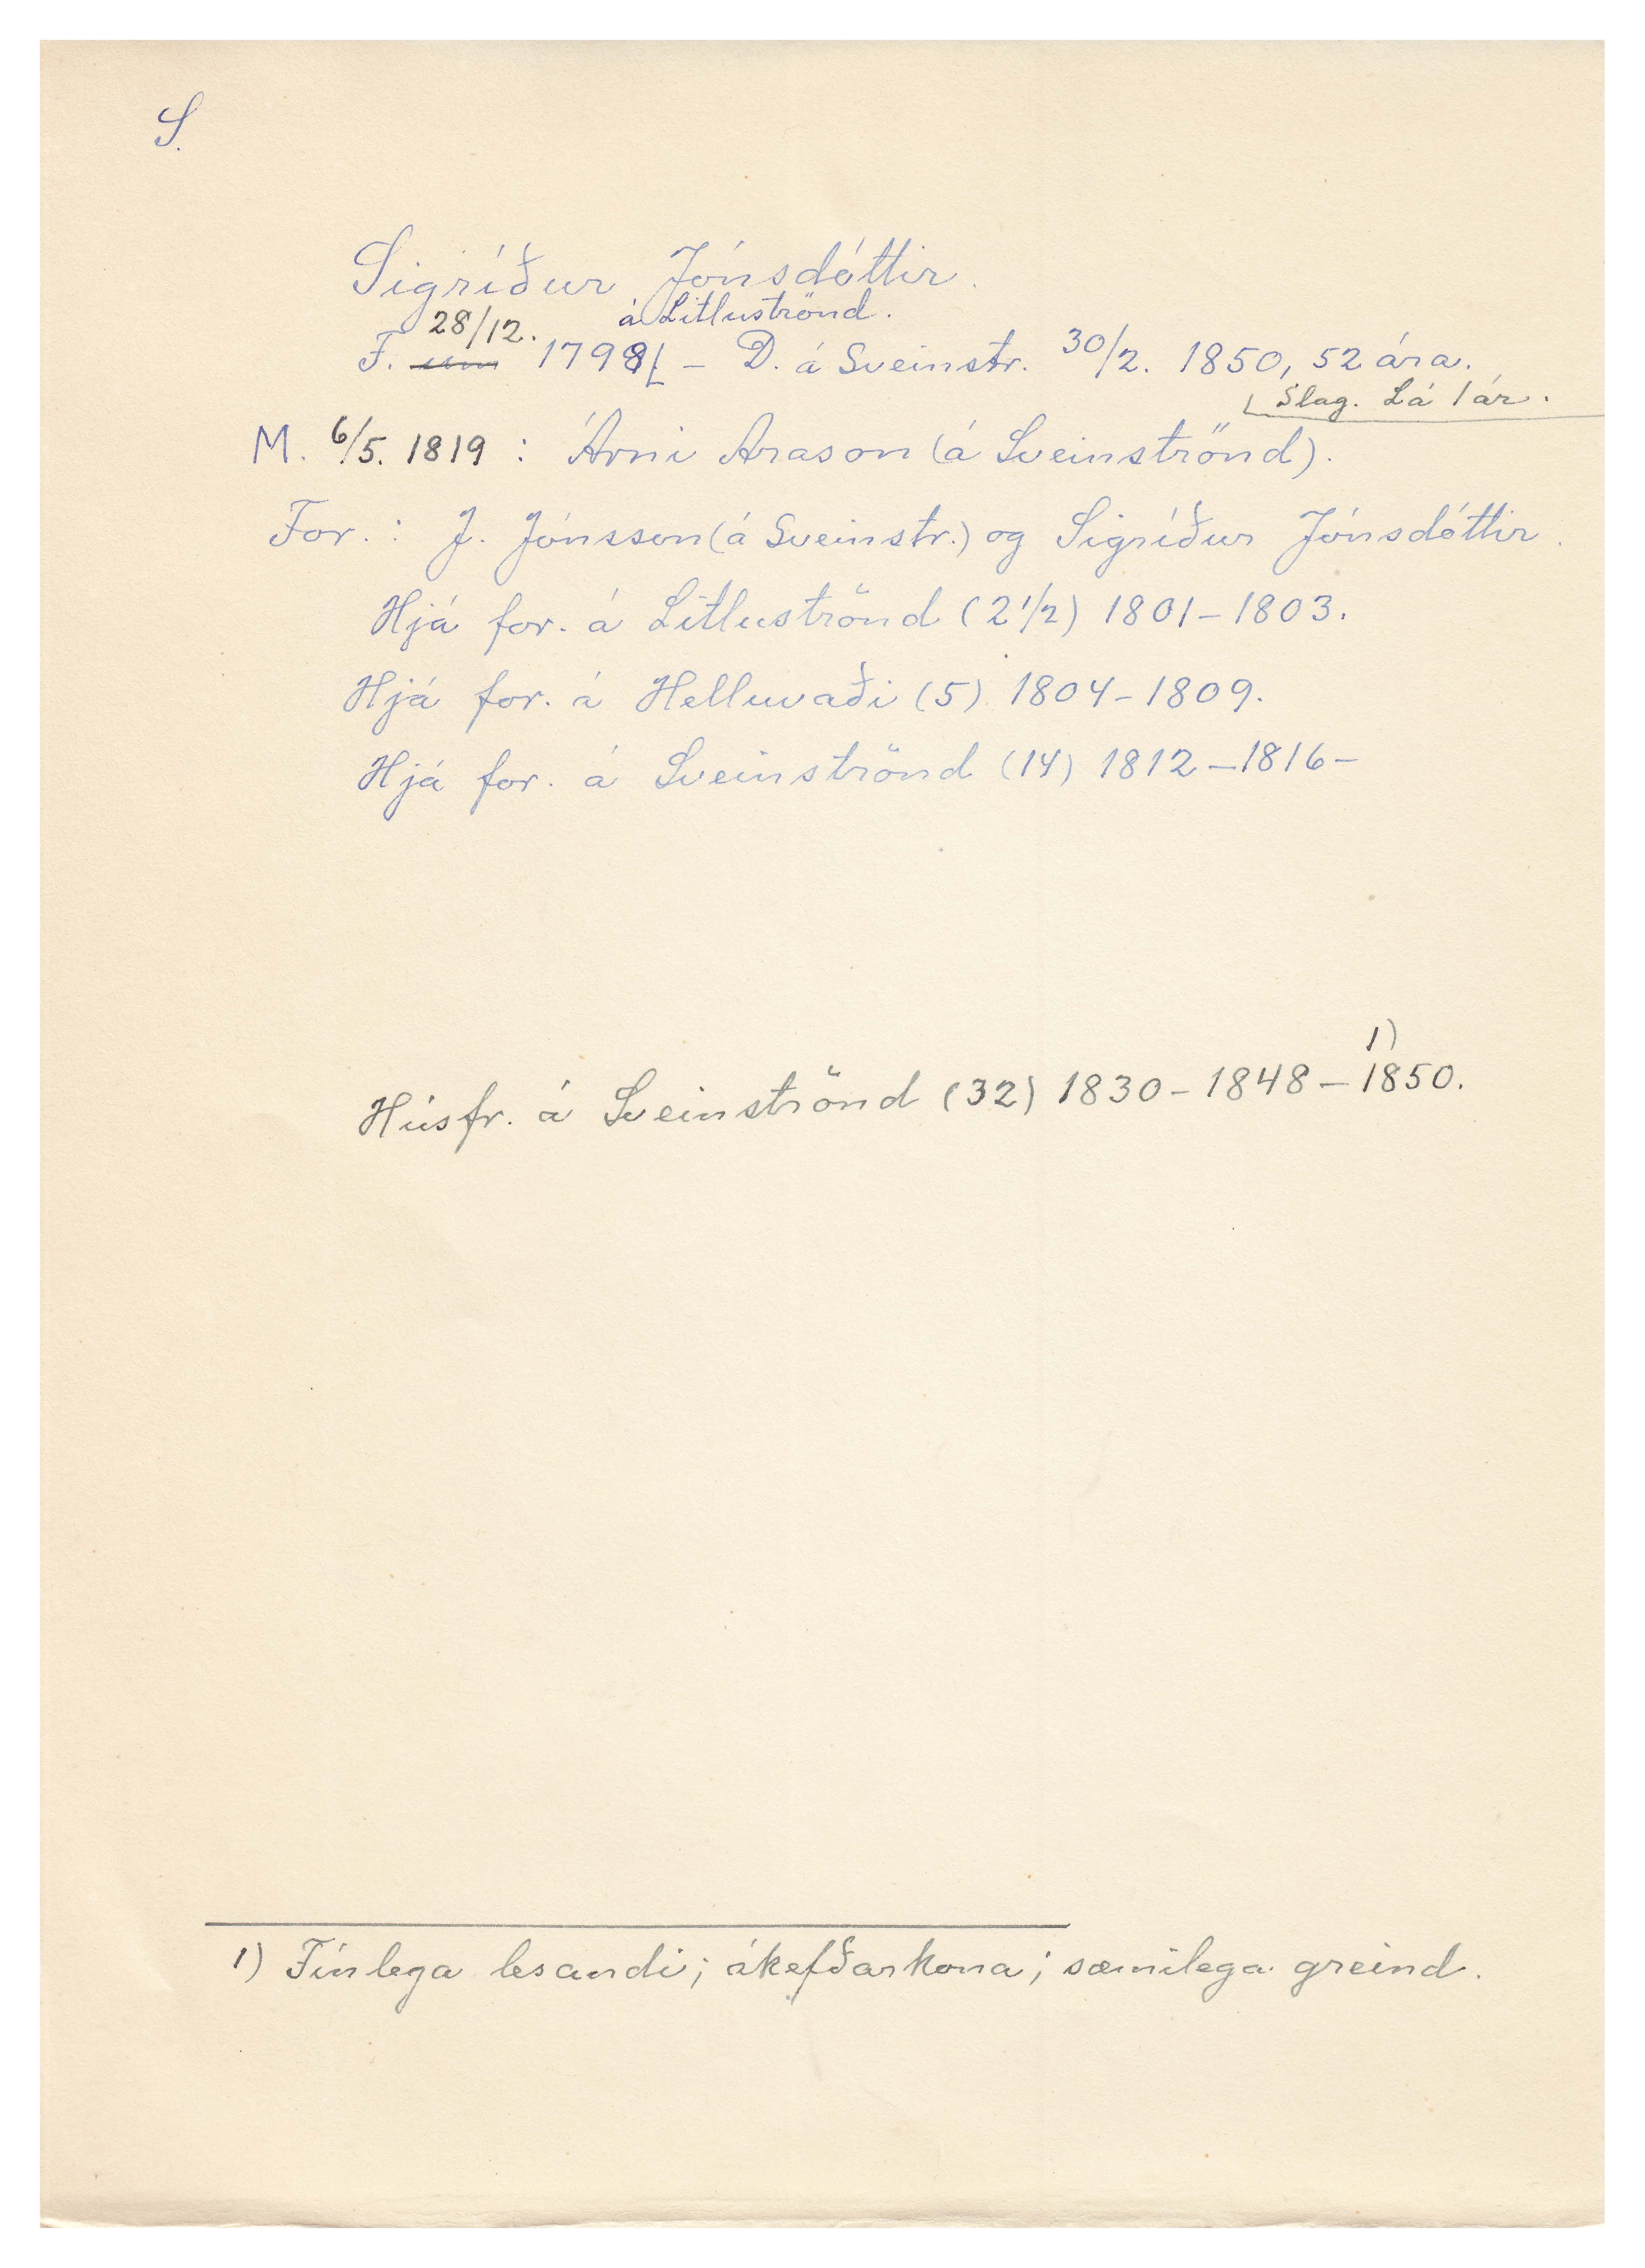 S.
Sigríður Jónsdóttir.
28/12. á Litluströnd.
F. um 1798 – D. á Sveinstr. 30/2. 1850, 52 ára.
Slag. Lá 1 ár.
M. 6/5. 1819 : Árni Arason (á Sveinströnd).
For. : J. Jónsson (á Sveinstr.) og Sigríður Jónsdóttir.
Hjá for. á Litluströnd (2 1/2) 1801–1803.
Hjá for. á Helluvaði (5) 1804–1809.
Hjá for. á Sveinströnd (14) 1812–1816–
1)
Húsfr. á Sveinströnd (32) 1830–1848–1850.
1) Fínlega lesandi; ákefðarkona; sæmilega greind.